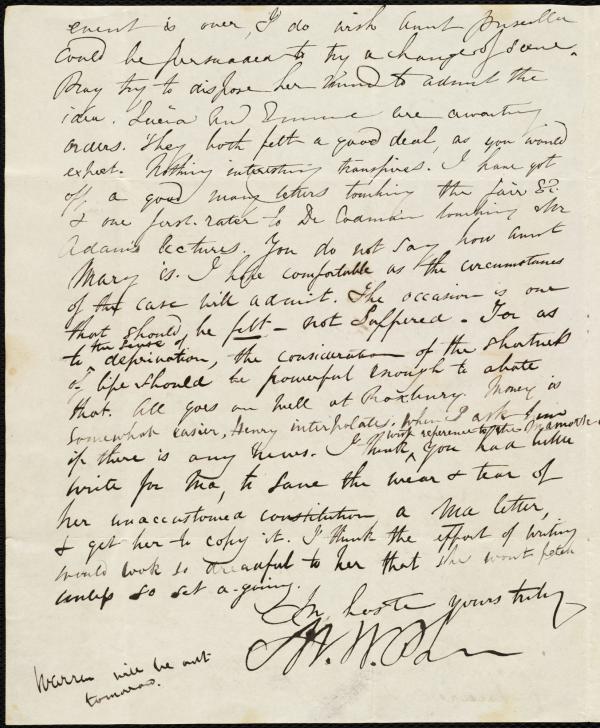 event is over, I do wish aunt Priscilla
could be persuaded to try a change of scene.
Pray try to dispose her mind to admit the
idea. Lucia and Emma are awaiting
orders. They both felt a good deal, as you would
expect. Nothing interesting transpires. I have got
off a good many letters touching the Fair &c
& one first-rater to Dr Codman touching Mr
Adams lectures. You do not say how aunt
Mary is. I hope comfortable as the circumstances
of the case will admit. The occasion is one
that should be felt - not suffered. For as
to the sense of deprivation, the consideration of the shortness
of life should be powerful enough to abate
that. All goes on well at Roxbury. Money is
somewhat easier, Henry interpolates, when I ask him
if there is any news. I think, with reference to the you had better
write for Ma, to save the wear & tear of
her unaccustomed constitution a Ma letter,
& get her to copy it. I think the effort of writing
would look so dreadful to her that she wont
unless so set a-going.
In haste yours truly
Warren will be out
tomorrow.